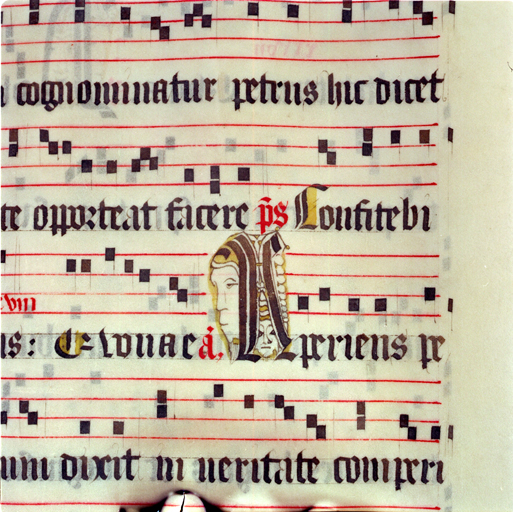 cognominatur petrus hic dicet
te opporteat facere p̄s Confitebi
xviii
is: Euouae a. Aperiens pe
um dixit in ueritate comperi